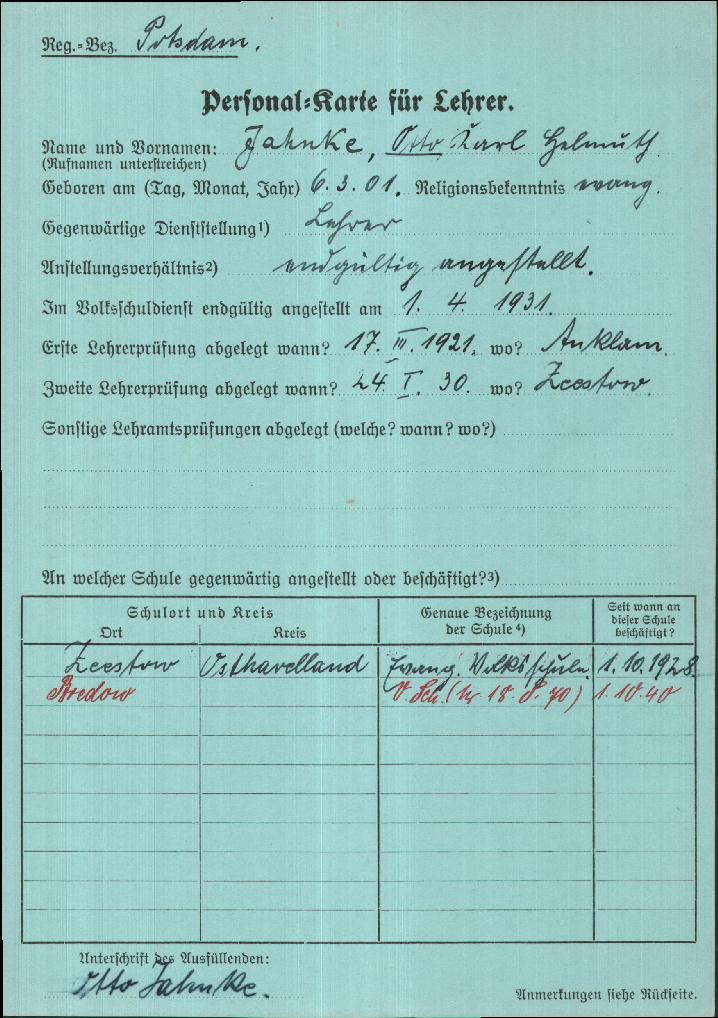 Reg.-Bez. Potsdam.
Personal-Karte für Lehrer.
Name und Vornamen: Jahnke, Otto Karl Helmuth.
(Rufnamen unterstreichen)
Geboren am (Tag, Monat, Jahr) 6. 3. 01. Religionsbekenntnis evang.
Gegenwärtige Dienststellung1) Lehrer
Anstellungsverhältnis2) endgültig angestellt.
Im Volksschuldienst endgültig angestellt am 1. 4. 1931.
Erste Lehrerprüfung abgelegt wann? 17. III. 1921. wo? Anklam.
Zweite Lehrerprüfung abgelegt wann? 24. I. 30. wo? Zeestow.
Sonstige Lehramtsprüfungen abgelegt (welche? wann? wo?)
An welcher Schule gegenwärtig angestellt oder beschäftigt?3)
Schulort und Kreis
Ort Kreis
Genaue Bezeichnung
der Schule4)
Seit wann an
dieser Schule
beschäftigt?
Zeestow Osthavelland Evang. Volksschule. 1. 10. 1928.
Bredow V. Sch. 1. 10. 40
Unterschrift des Ausfüllenden:
Otto Jahnke.
Anmerkungen siehe Rückseite.